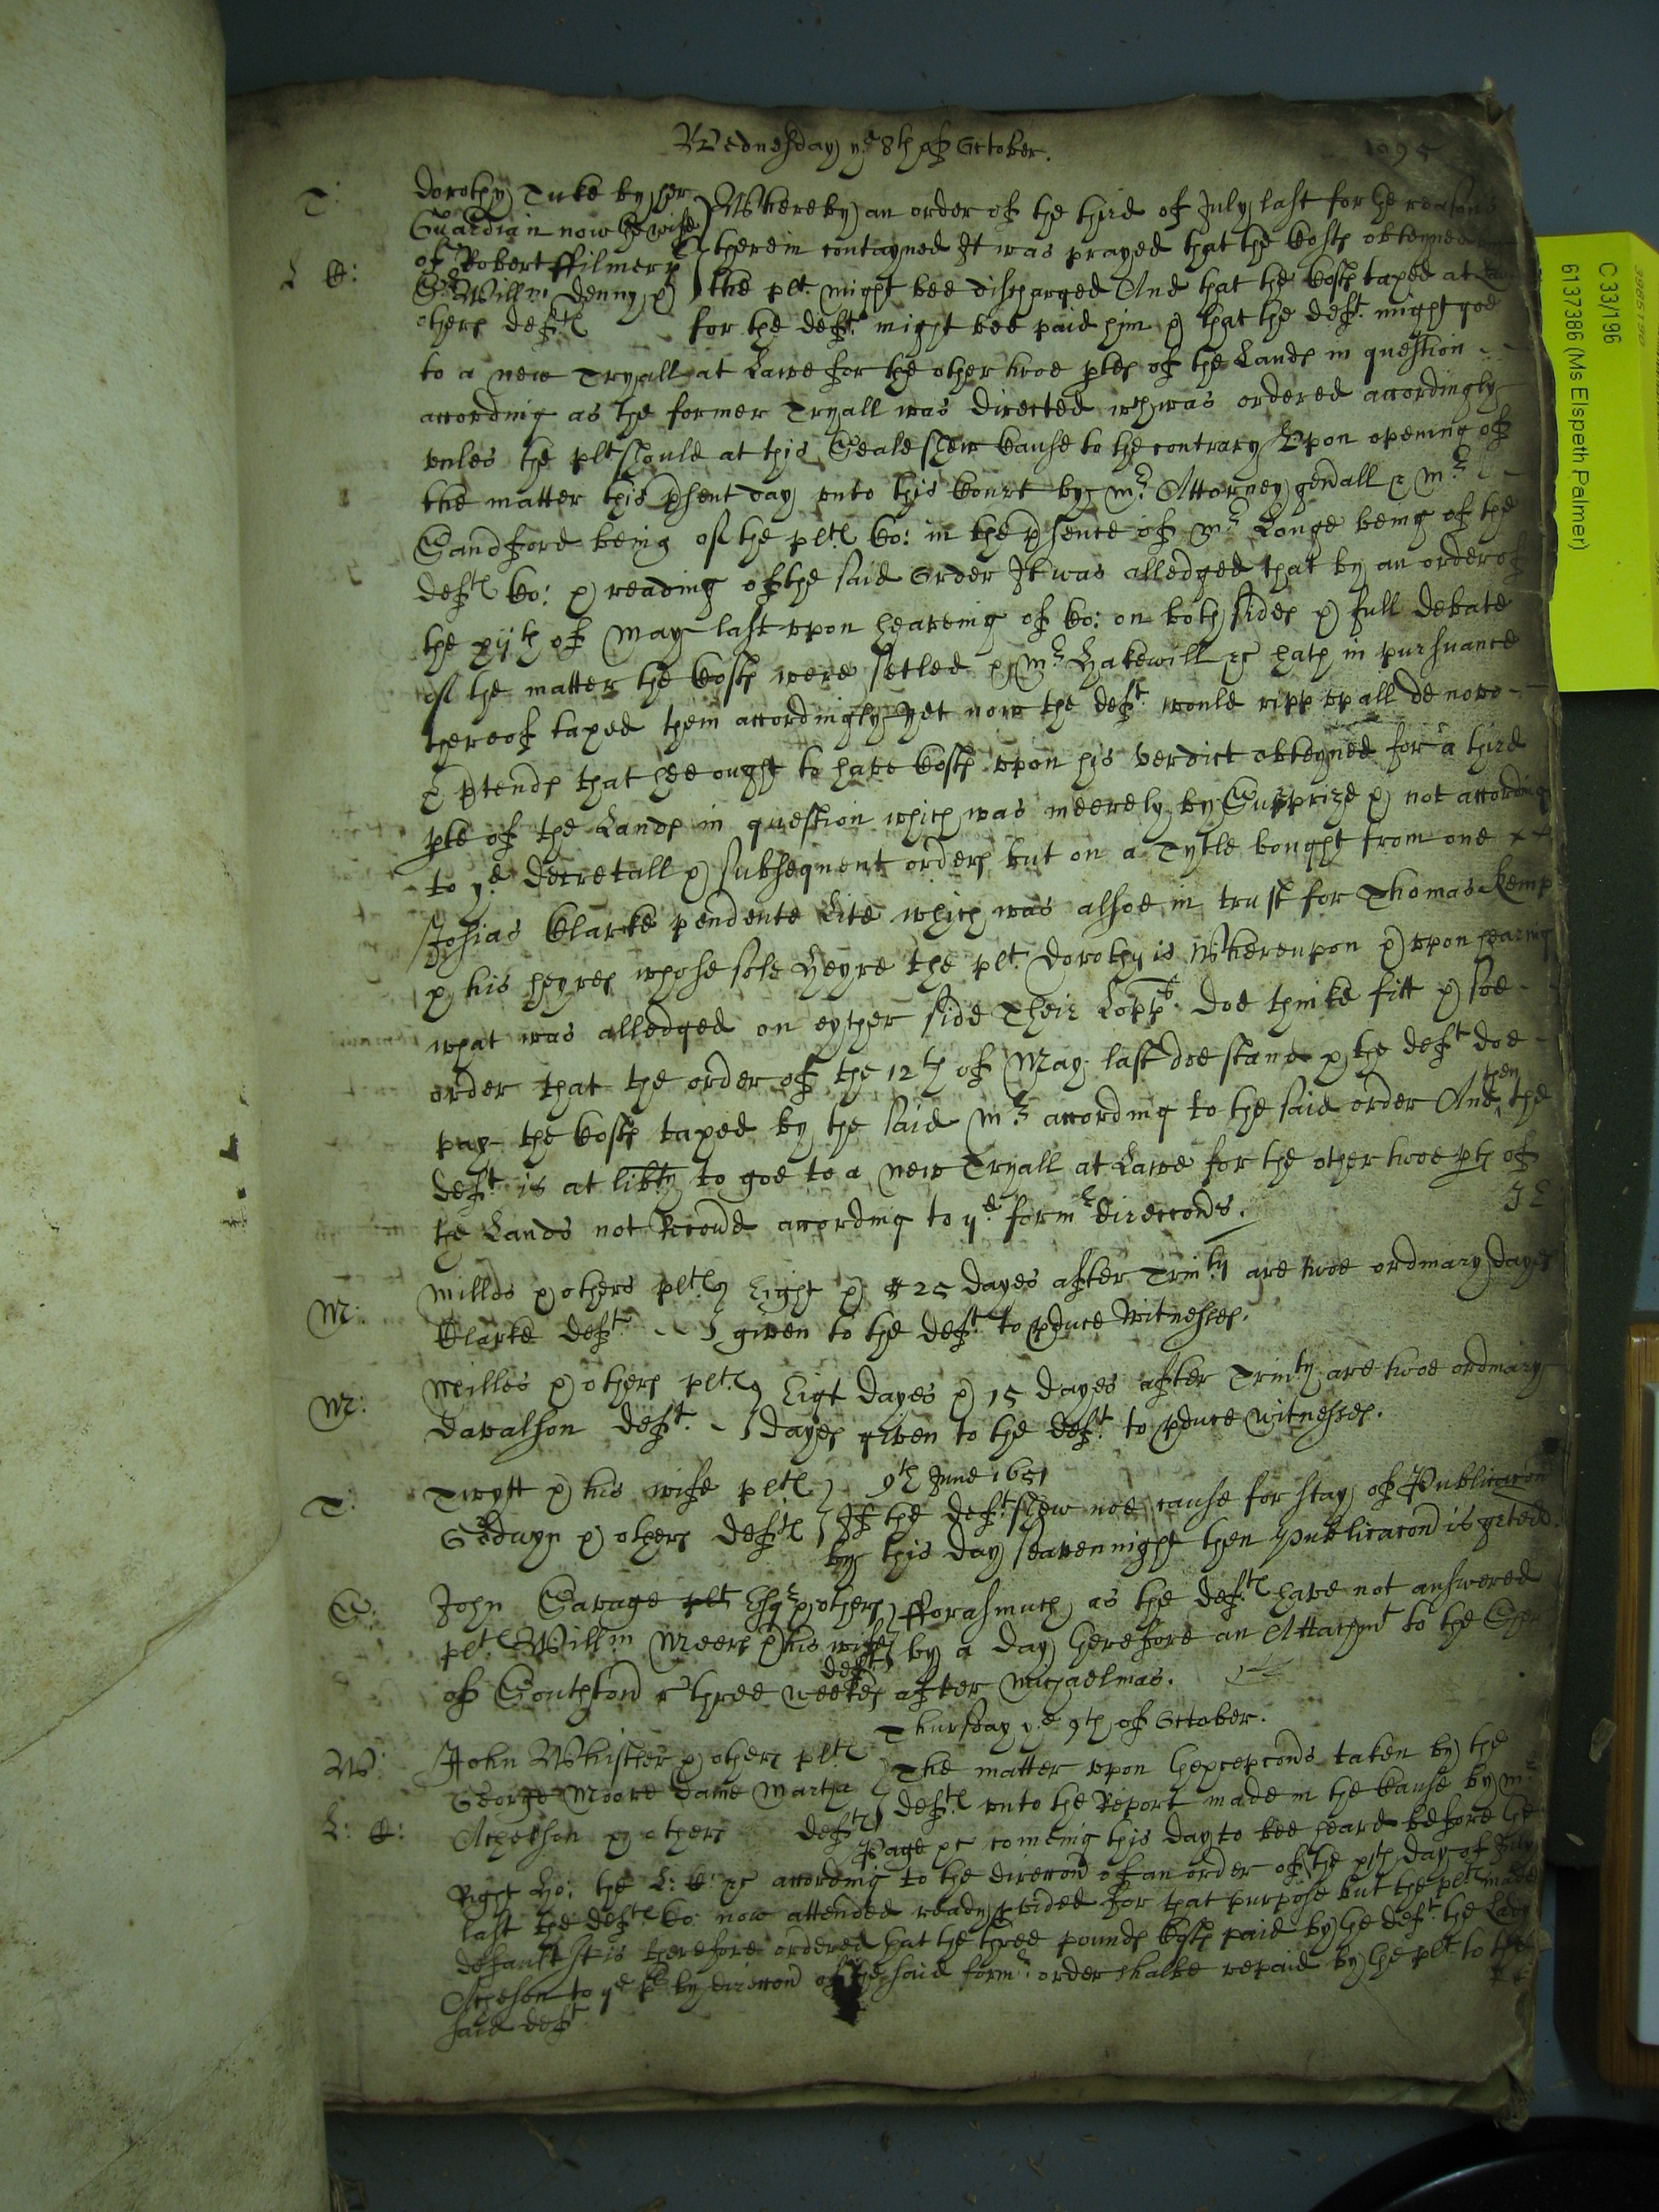 Wednesday ye 8th of October.
1095
T: Dorothy Tuke by her
Guardian now the wife
of Robert ffilmer p
L C: Sr Willm Denny &
others deftes
Whereby an order of the third of July last for the reasons
therein contayned It was prayed that the costs obteyned
the plt. might bee discharged And that the costs taxed at
for the deft. might bee paid him & that the deft. might goe
to a new Tryall at Lawe for the other twoe ptes of the Lands in question
according as the former Tryall was directed wch was ordered accordingly
vnles the plt should at this Seale shew cause to the contrary Vpon opening of
the matter this psent day vnto this Court by mr. Attorney genall & mr.
Sandford being of the pltes Co: in the psence of mr Longe being of the
deftes Co: & reading of the said Order It was alledged that by an order of
the xijth of May last vpon heareing of Co: on both sides & full debate
of the matter the Costs were setled & mr Hakewill &c hath in pursuance
thereof taxed them accordingly yet now the deft. would ripp vp all de novo
& ptends that hee ought to have Costs vpon his verdict obteyned for a third
pte of the Lands in question which was meerely by Surprize & not according
to ye decretall & subsequent orders but on a Tytle bought from one
Josias Clarke pendente Lite which was alsoe in trust for Thomas Kemp
& his heyres whose sole Heyre the plt. Dorothy is Whereupon & vpon hearing
what was alledged on eyther side Their Lopps. doe thinke fitt & soe
order that the order of the 12th of May last doe stand & the deft doe
pay the Costs taxed by the said mr. according to the said order And then the
deft. is at libty to goe to a new Tryall at Lawe for the other twoe pts of
the Lands not recovd according to ye. formr direccons.
J E
M: Millds & others pltes
Clarke deft.
Eight & 25 dayes after Trinty are twoe ordinary dayes
given to the deft. to pduce Witnesses.
M: Milles & others pltes
Davalson deft.
Eigt dayes & 15 dayes after Trinty are twoe ordinary
dayes given to the deft. to pduce witnesses.
T: Twytt & his wife pltes
Godwyn & others deftes
9th June 1651
If the deft. shew noe cause for stay of Publicacon
by this day seavennight then publicacon is grted.
S: John Savage plt Esqr & others
pltes Willm Meers & his wife
deftes
fforasmuch as the deftes have not answered
by a day therefore an Attachmt to the Sher
of Southton r three weekes after Michaelmas.
Thursday ye 9th of October.
W: John Whistler & others pltes
George Moore Dame Martha
L: C: Acheson & others deftes
The matter vpon thexcepcons taken by the
deftes vnto the Report made in the Cause by mr
Page &c comeing this day to bee heard before the
Right Ho: the L: C: &c according to the direccon of an order of the xth day of July
last the deftes Co: now attended ready pvided for that purpose but the pltes made
default It is therefore ordered that the three pounds Costs paid by the deft. the Lady
Acheson to ye plt by direccon of the said formr. order shalbe repaid by the plt. to the
said deft.
C 33/196
6137386 (Ms Elspeth Palmer)